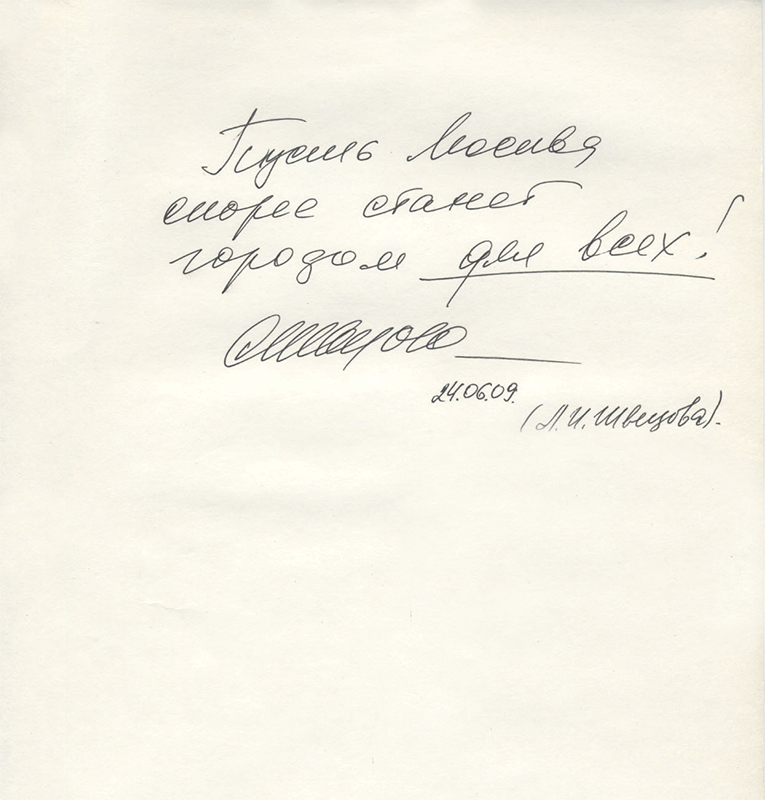 Пусть Москва
скорее станет
городом для всех!
24.06.09.
(Л.И. Швецова).